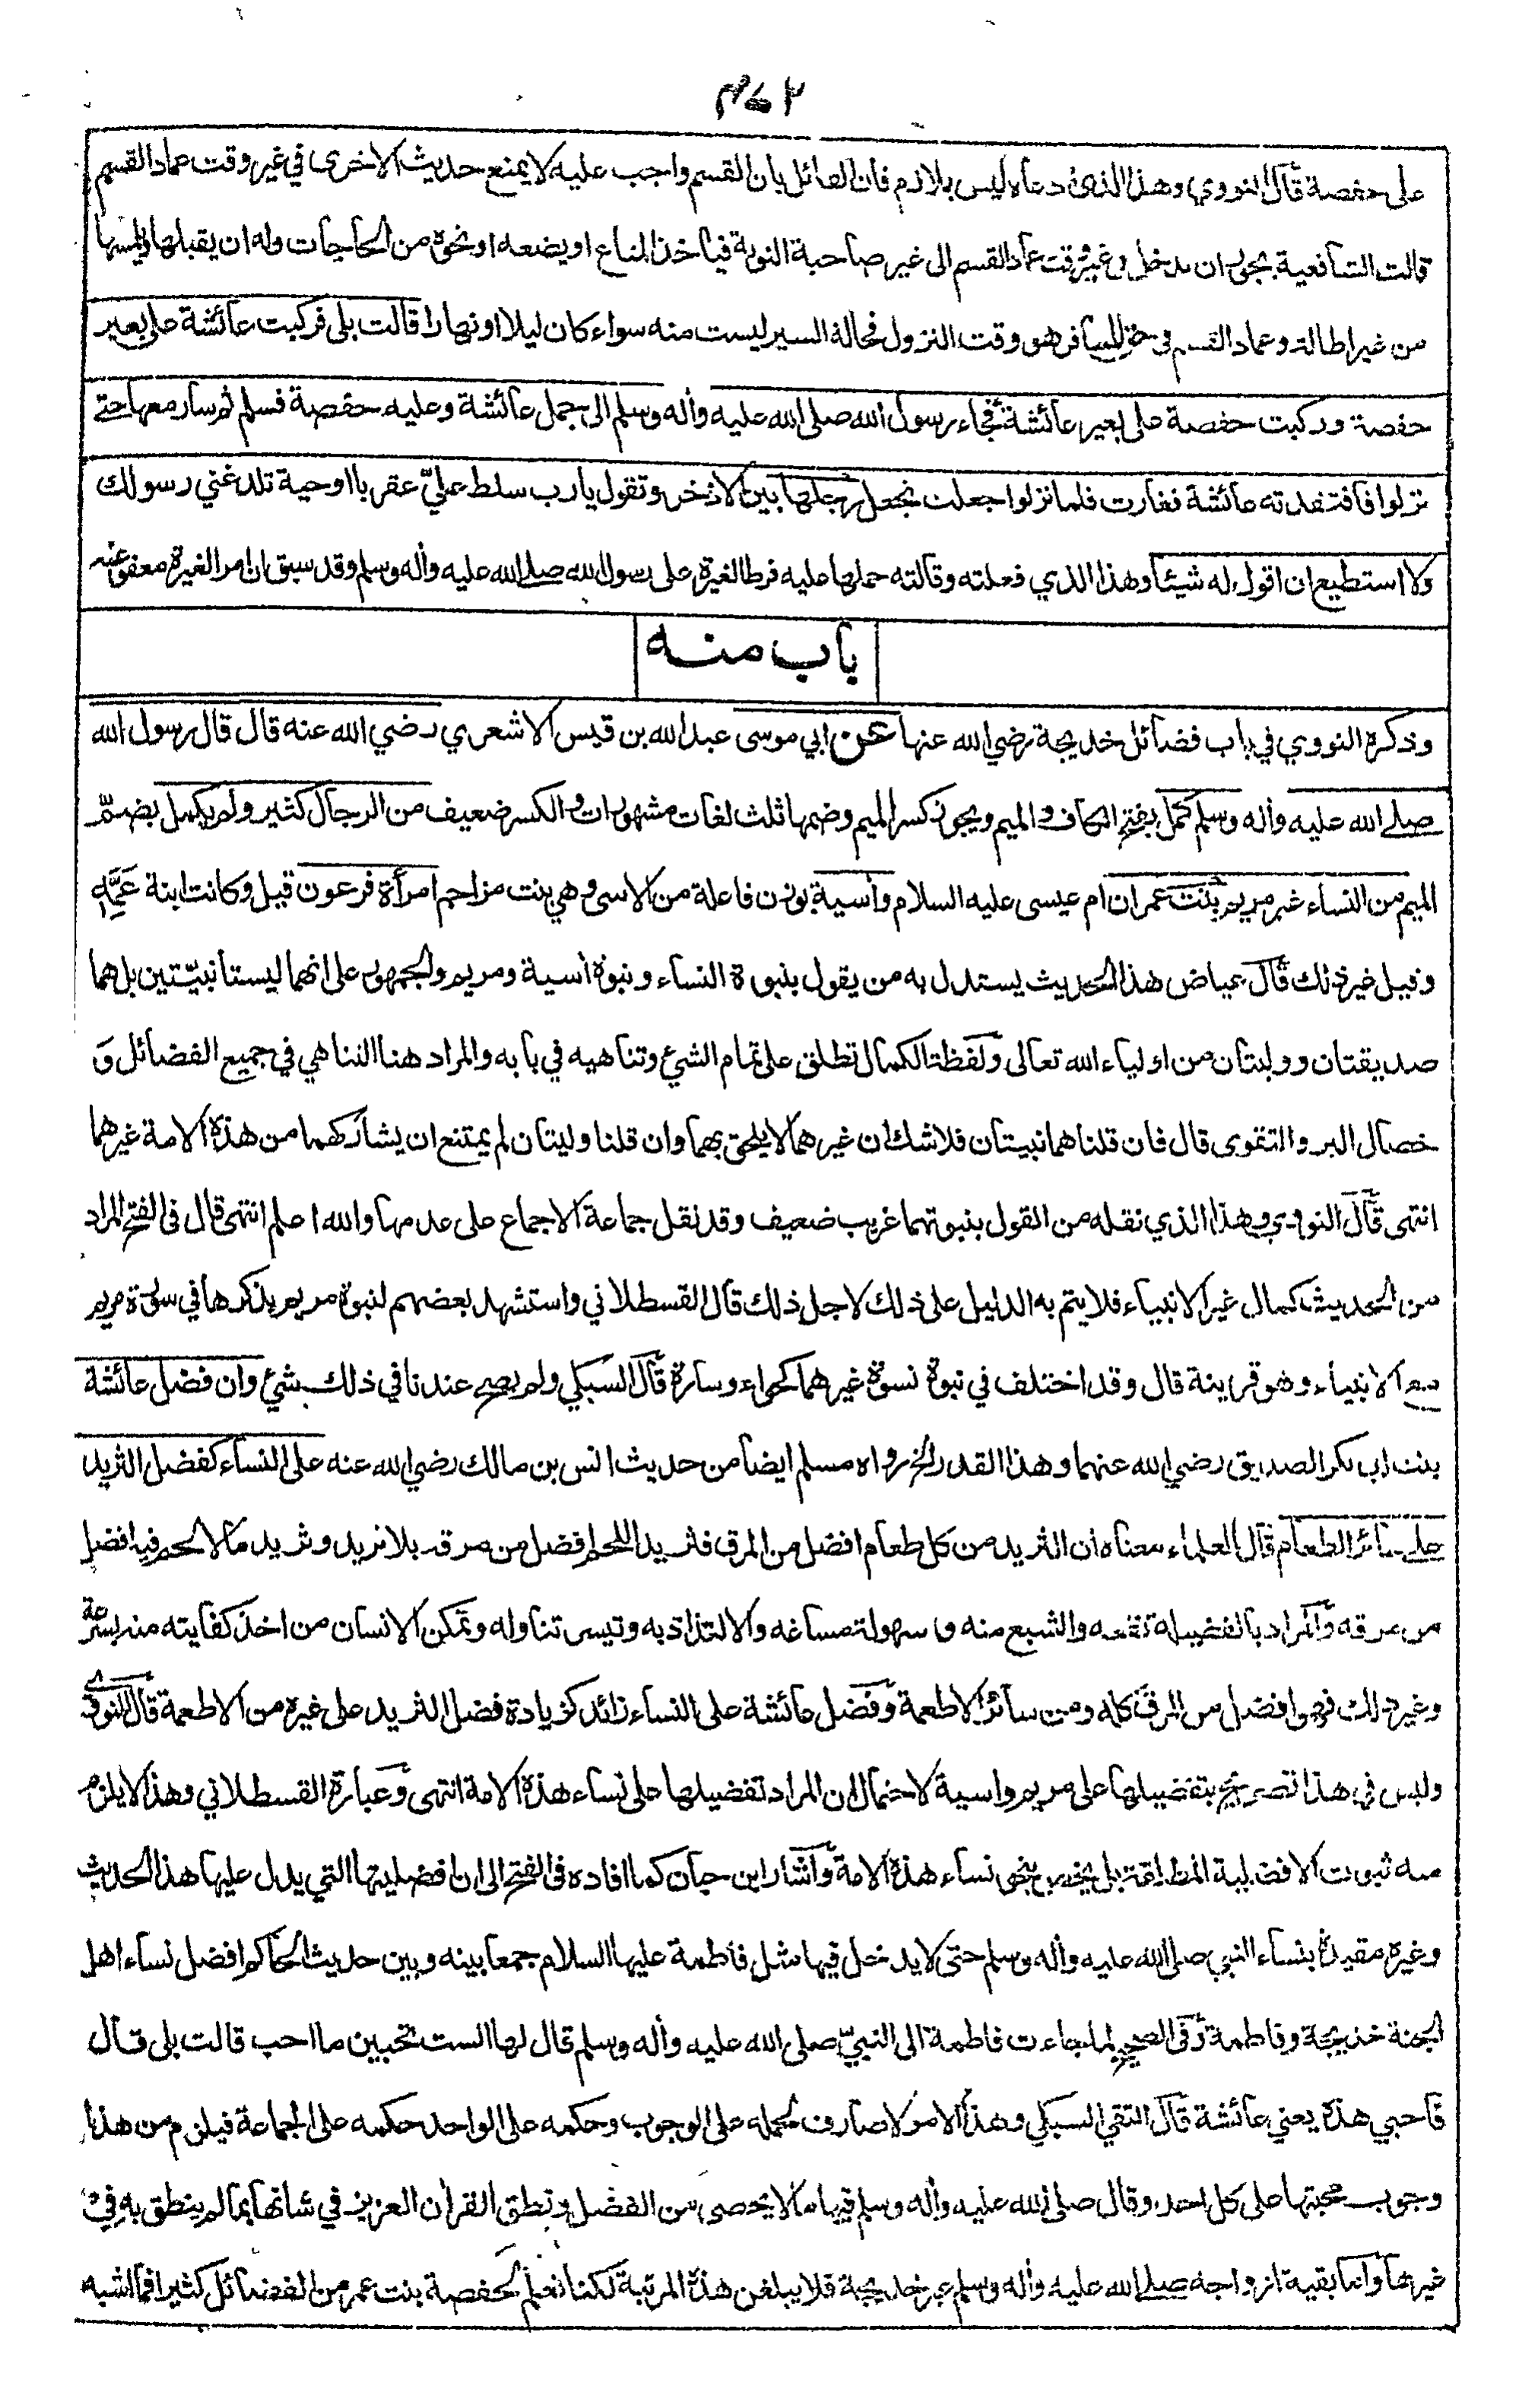 ٤٧٢
على حفصة قال النووي وهذا الذي ادعاه ليس بلازم فان القائل بان القسم واجب عليه لا يمنع حديث الاخرى في غير وقت عماد القسم
قالت الشافعية يجوز ان يدخل في غير وقت عماد القسم الى غير صاحبة النوبة فياخذ المتاع او يضعه او نحوه من الحاجات وله ان يقبلها ويلمسها
من غير اطالة وعماد القسم في حق المسافر هو وقت النزول فحالة السير ليست منه سواء كان ليلا او نهارا قالت بلى فركبت عائشة على بعير
حفصة وركبت حفصة على بعير عائشة فجاء رسول الله صلى الله عليه وأله وسلم الى جمل عائشة وعليه حفصة فسلم ثم سار معها حتى
نزلوا فافتقدته عائشة فغارت فلما نزلوا جعلت تجعل رجلها بين الاذخر وتقول يا رب سلط عليّ عقربا او حية تلدغني رسولك
ولا استطيع ان اقول له شيئا وهذا الذي فعلته وقالته حملها عليه فرط الغيرة على رسول الله صلى الله عليه وأله وسلم وقد سبق ان امر الغيرة معفو عنه
باب منه
وذكره النووي في باب فضائل خديجة رضي الله عنها عن ابي موسى عبد الله بن قيس الاشعري رضي الله عنه قال قال رسول الله
صلى الله عليه وأله وسلم كمل بفتح الكاف والميم ويجوز كسر الميم وضمها ثلث لغات مشهورات والكسر ضعيف من الرجال كثير ولم يكمل بضم
الميم من النساء غير مريم بنت عمران ام عيسى عليه السلام وأسية بوزن فاعلة من الاسى وهي بنت مزاحم امرأة فرعون قيل وكانت ابنة عمه
وقيل غير ذلك قال عياض هذا الحديث يستدل به من يقول بنبوة النساء ونبوة أسية ومريم والجمهور على انهما ليستا نبيّتين بل هما
صديقتان ووليتان من اولياء الله تعالى ولفظة الكمال تطلق على تمام الشئ وتناهيه في بابه والمراد هنا التناهي في جميع الفضائل و
خصال البر والتقوى قال فان قلنا هما نبيتان فلا شك ان غيرهما لا يلحق بهما وان قلنا وليتان لم يمتنع ان يشاركهما من هذه الامة غيرهما
انتهى قال النووي وهذا الذي نقله من القول بنبوتهما غريب ضعيف وقد نقل جماعة الاجماع على عدمها والله اعلم انتهى قال في الفتح المراد
من الحديث كمال غير الانبياء فلا يتم به الدليل على ذلك لاجل ذلك قال القسطلاني واستشهد بعضهم لنبوة مريم بذكرها في سورة مريم
مع الانبياء وهو قرينة قال وقد اختلف في نبوة نسوة غيرهما كحواء وسارة قال السبكي ولم يصح عندنا في ذلك شئ وان فضل عائشة
بنت ابي بكر الصديق رضي الله عنهما وهذا القدر الخ رواه مسلم ايضا من حديث انس بن مالك رضي الله عنه على النساء كفضل الثريد
على سائر الطعام قال العلماء معناه ان الثريد من كل طعام افضل من المرق فثريد اللحم افضل من مرقه بلا ثريد وثريد ما لا لحم فيه افضل
من مرقه والمراد بالفضيلة نفعه والشبع منه وسهولة مساغه والالتذاذ به وتيسر تناوله وتمكن الانسان من اخذ كفايته منه بسرعة
وغير ذلك فهو افضل من المرق كله ومن سائر الاطعمة وفضل عائشة على النساء زائد كزيادة فضل الثريد على غيره من الاطعمة قال النووي
وليس في هذا تصريح بتفضيلها على مريم واسية لاحتمال ان المراد تفضيلها على نساء هذه الامة انتهى وعبارة القسطلاني وهذا لا يلزم
منه ثبوت الافضلية المطلقة بل يخص بنحو نساء هذه الامة واشار ابن حبان كما افاده في الفتح الى ان افضليتها التي يدل عليها هذا الحديث
وغيره مقيدة بنساء النبي صلى الله عليه وأله وسلم حتى لا يدخل فيها مثل فاطمة عليها السلام جمعا بينه وبين حديث الحاكم افضل نساء اهل
الجنة خديجة وفاطمة وفي الصحيح لما جاءت فاطمة الى النبيّ صلى الله عليه وأله وسلم قال لها الست تحبين ما احب قالت بلى قال
فاحبي هذه يعني عائشة قال التقي السبكي وهذا الامر لا صارف لحمله على الوجوب وحكمه على الواحد حكمه على الجماعة فيلزم من هذا
وجوب محبتها على كل احد وقال صلى الله عليه وأله وسلم فيها ما لا يحصى من الفضل ونطق القرأن العزيز في شانها بما لم ينطق به في
غيرها واما بقية ازواجه صلى الله عليه وأله وسلم غير خديجة فلا يبلغن هذه المرتبة لكنا نعلم لحفصة بنت عمر من الفضائل كثيرا فما اشبه